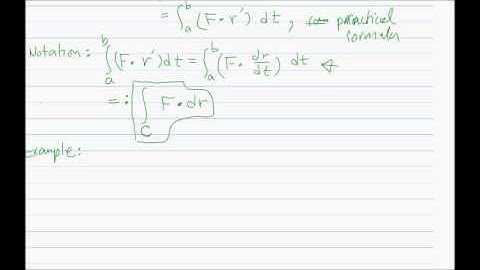 = ∫_a^b (F • r') dt, ← practical
formula
Notation: ∫_a^b (F • r') dt = ∫_a^b (F • dr/dt) dt
=: ∫_C F • dr
Example: